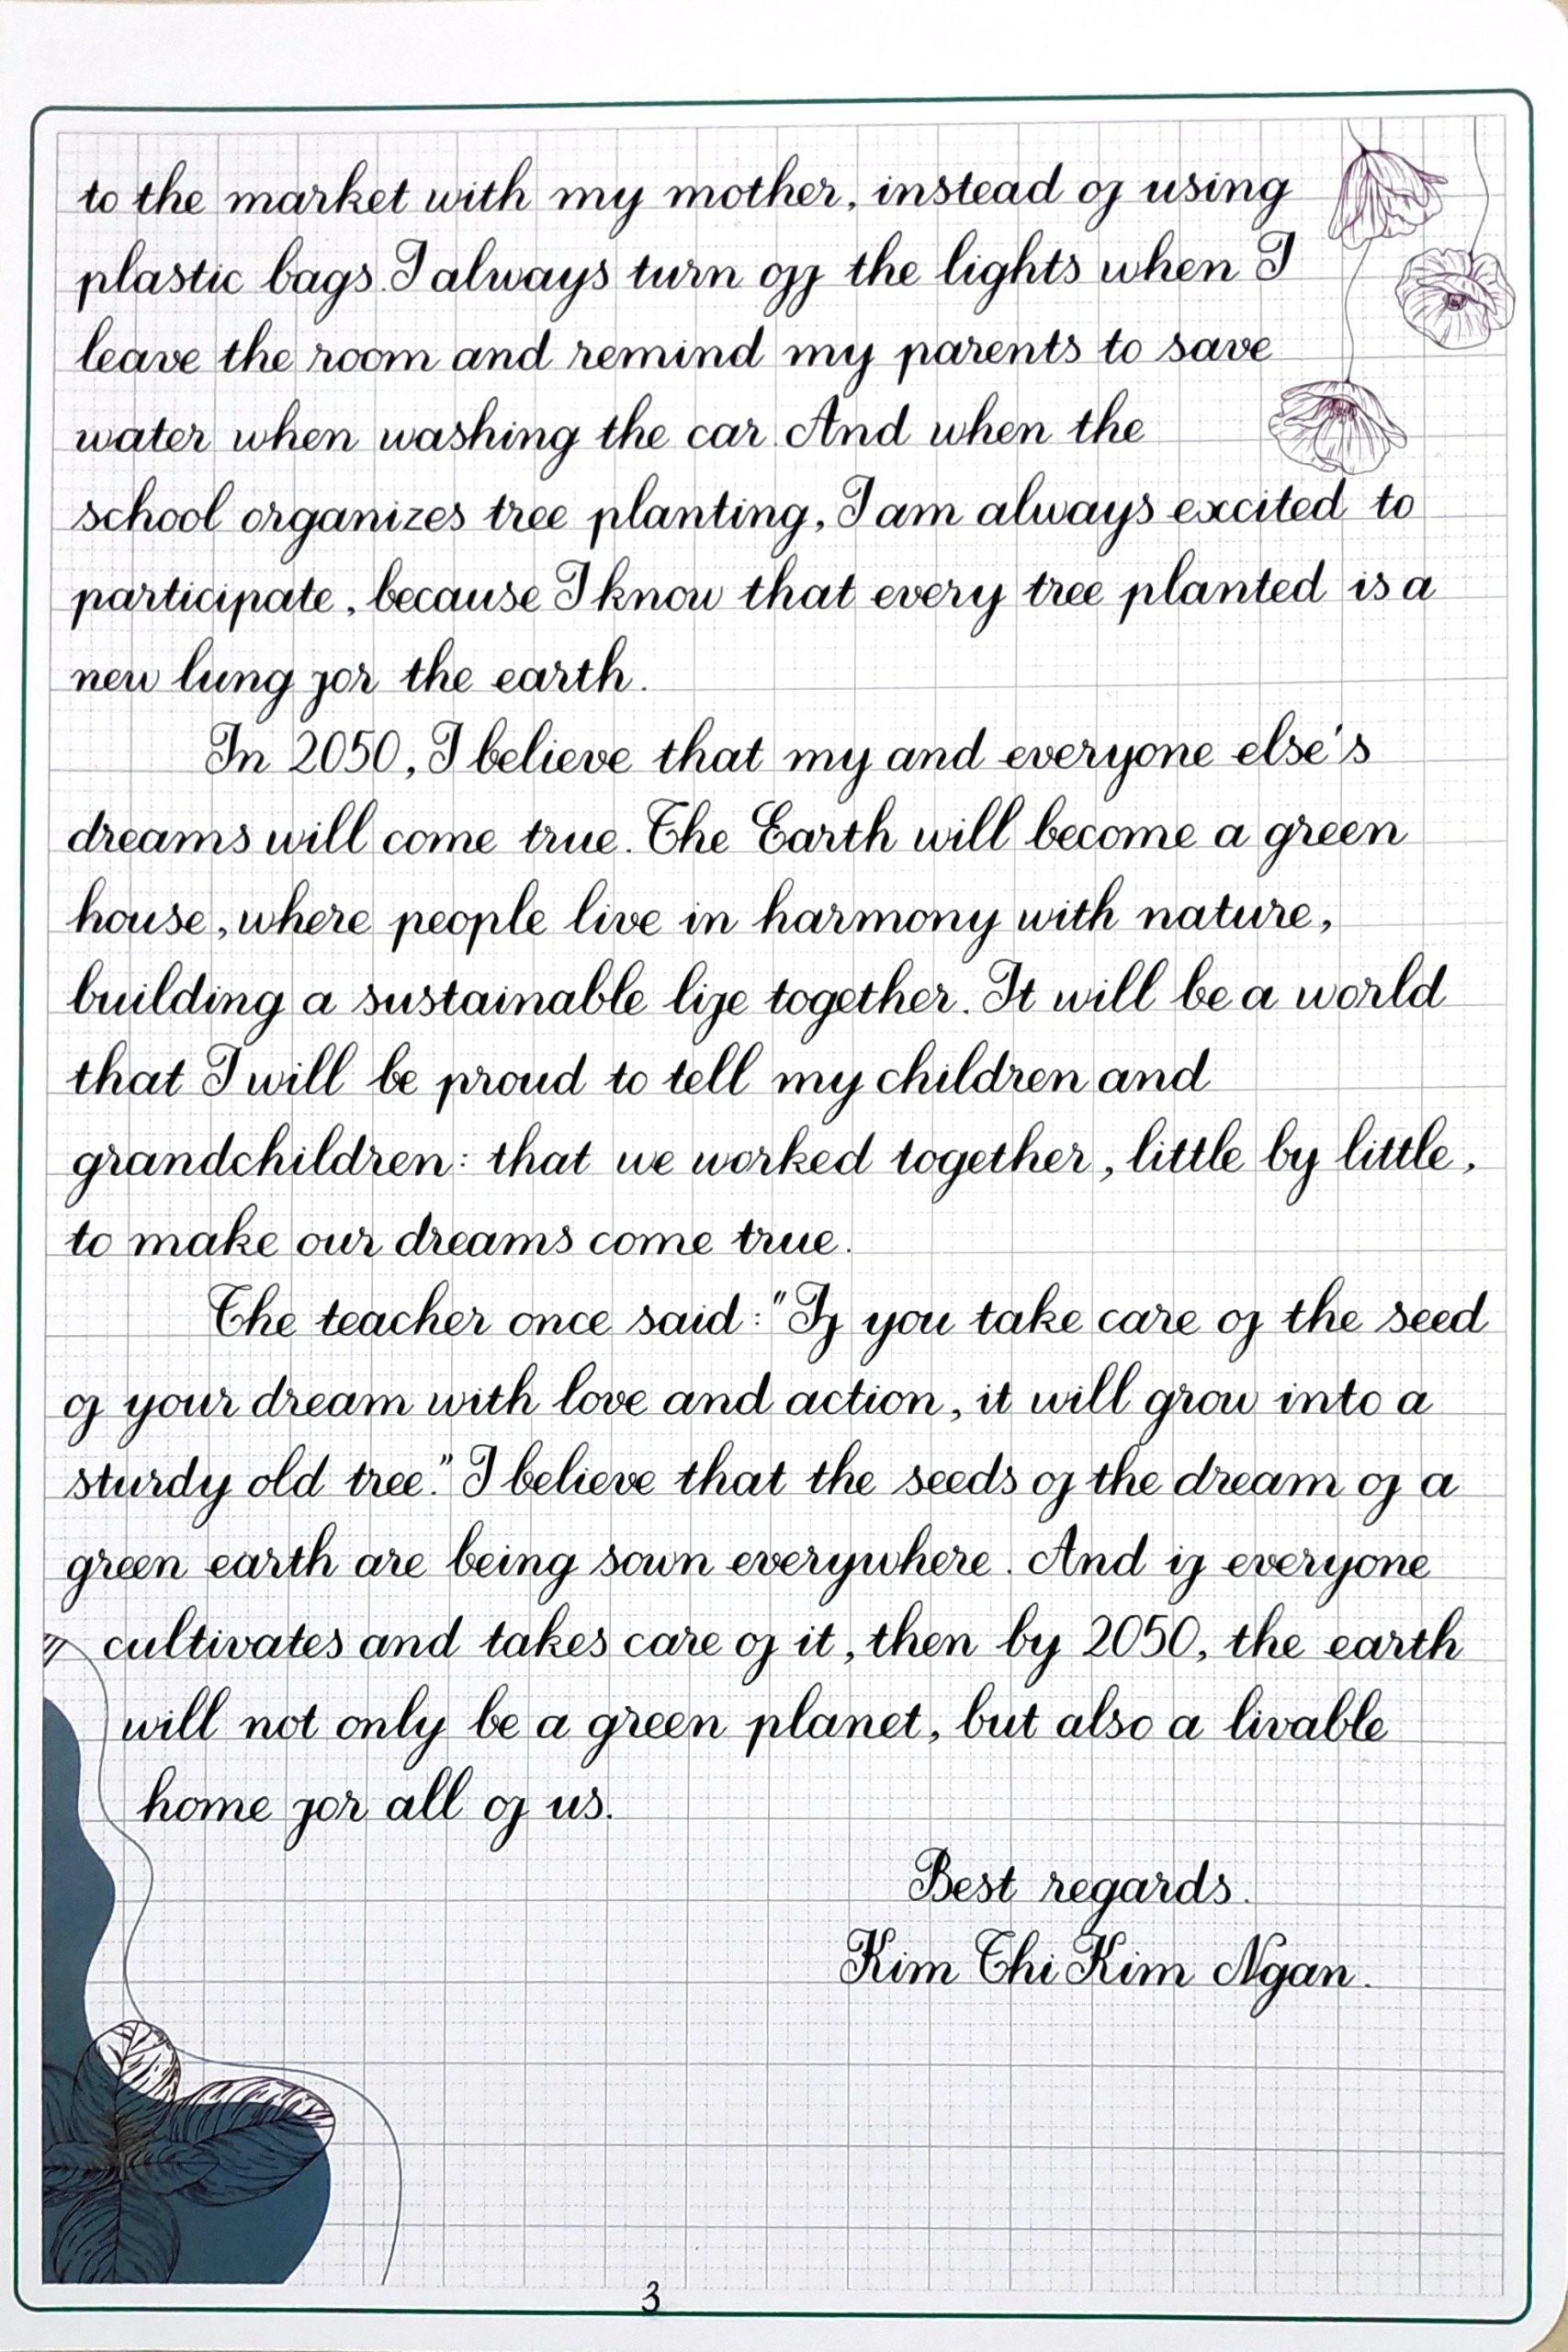 to the market with my mother, instead of using
plastic bags. I always turn off the lights when I
leave the room and remind my parents to save
water when washing the car. And when the
school organizes tree planting, I am always excited to
participate, because I know that every tree planted is a
new lung for the earth.
In 2050, I believe that my and everyone else's
dreams will come true. The Earth will become a green
house, where people live in harmony with nature,
building a sustainable life together. It will be a world
that I will be proud to tell my children and
grandchildren: that we worked together, little by little,
to make our dreams come true.
The teacher once said: "If you take care of the seed
of your dream with love and action, it will grow into a
sturdy old tree." I believe that the seeds of the dream of a
green earth are being sown everywhere. And if everyone
cultivates and takes care of it, then by 2050, the earth
will not only be a green planet, but also a livable
home for all of us.
Best regards.
Kim Thi Kim Ngan.
3